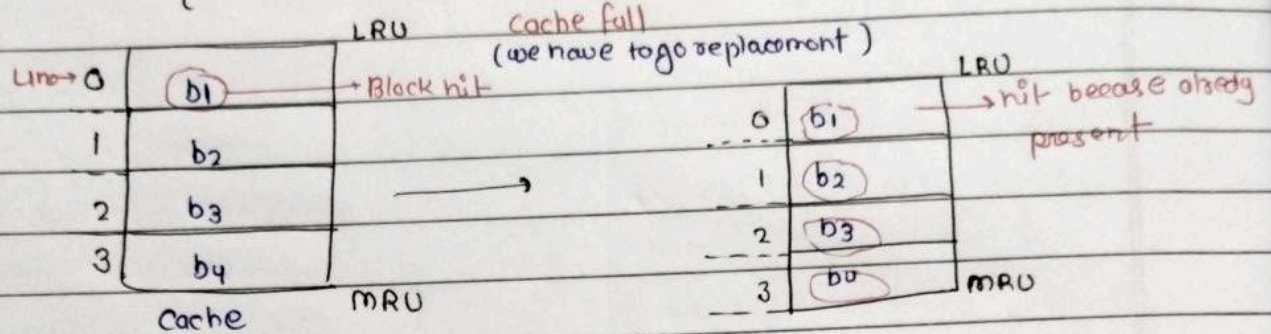 LRU
cache full
(we have to go replacomont)
Line→ 0 b1 → Block hit
1 b2
2 b3
3 b4
MRU
Cache
LRU
0 b1 → hit because alredy
present
1 b2
2 b3
3 b0
MRU